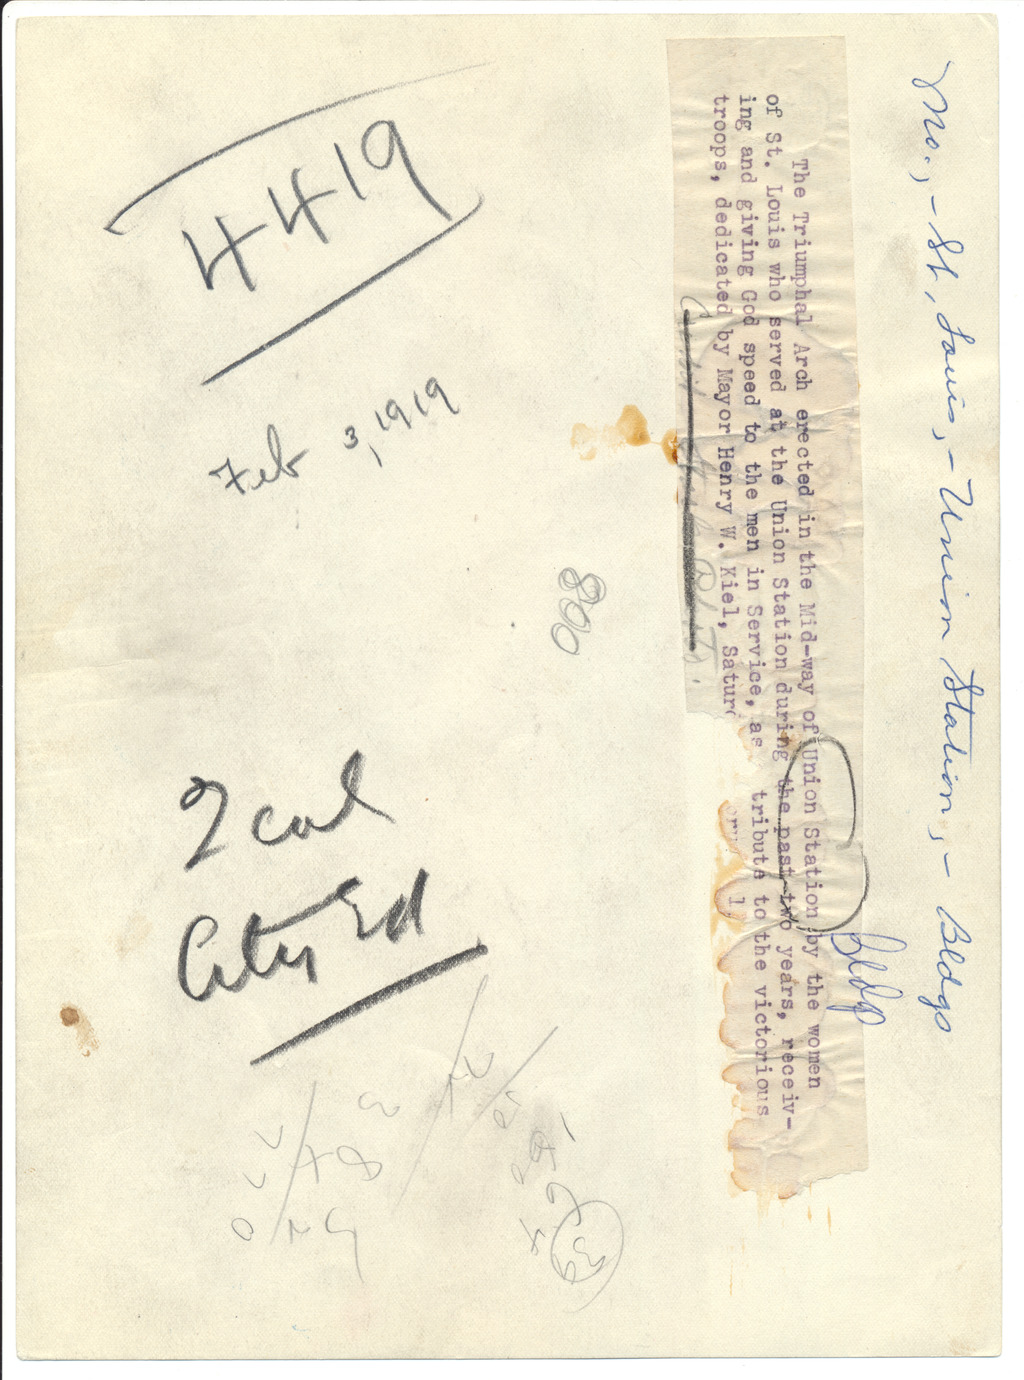 Mo., - St. Louis, - Union Station, - Bldgs
Bldg
The Triumphal Arch erected in the Mid-way of Union Station by the women
of St. Louis who served at the Union Station during the past two years, receiv-
ing and giving God speed to the men in Service, as tribute to the victorious
troops, dedicated by Mayor Henry W. Kiel, Satur
1,
4419
Feb 3, 1919
2 col
City Ed